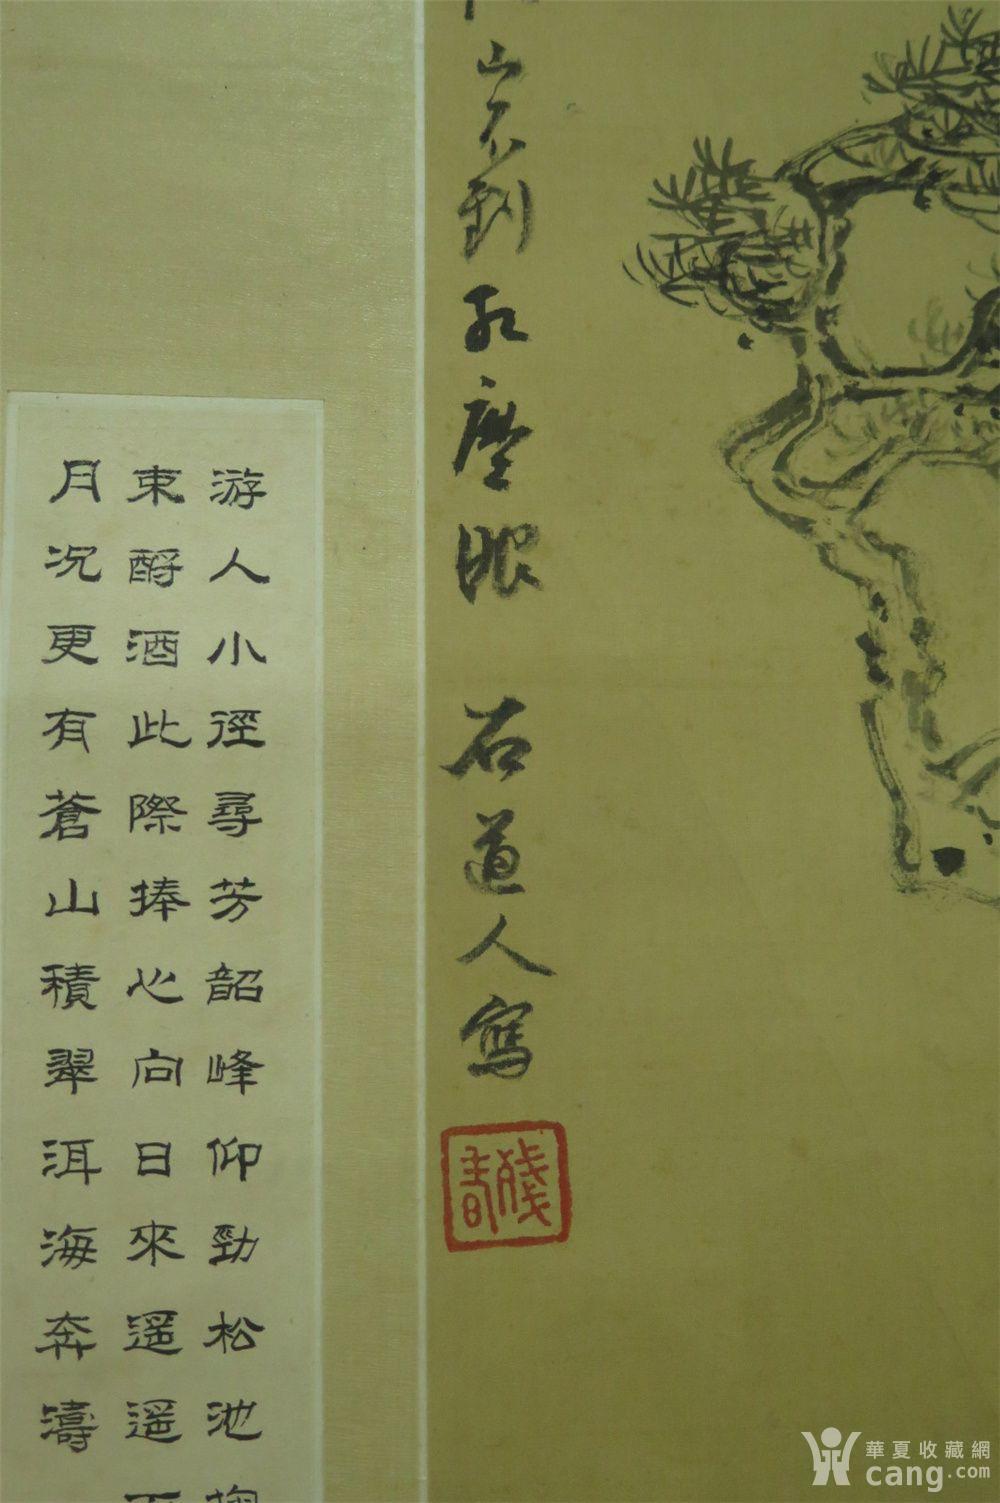 山不到红塵眼 石道人寫
殘書
游人小徑尋芳韶峰仰勁松池
東酹酒此際捧心向日來遥遥
月况更有蒼山積翠洱海奔濤
華夏收藏網
cang.com